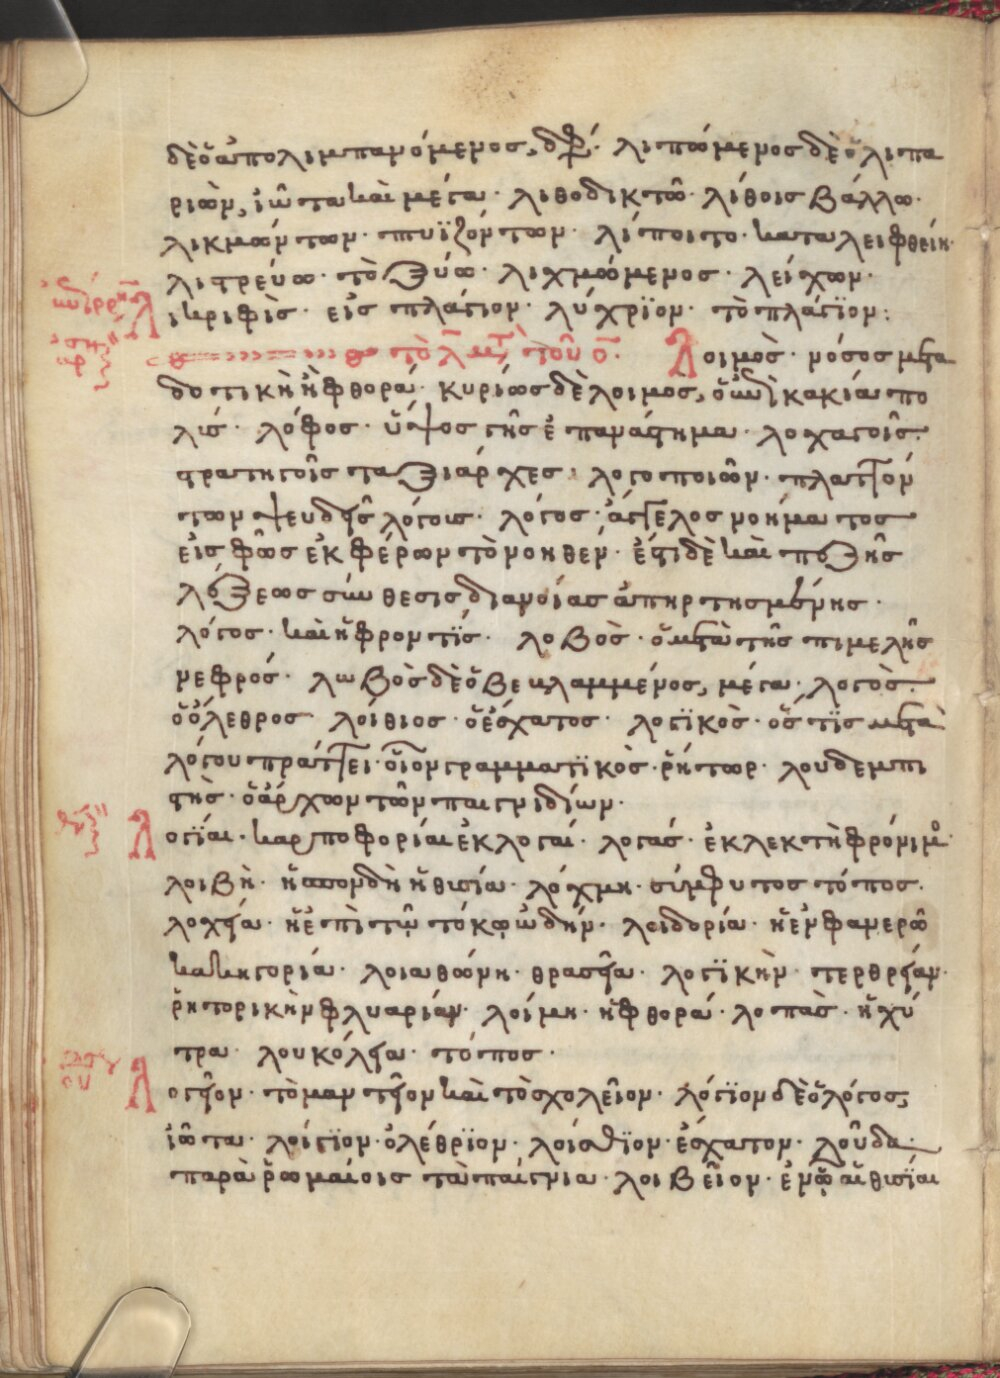 δὲ ὁ ἀπολιμπανόμενος, λιπώμενος δὲ ὁ λιπα
ριῶν, ἰῶτα καὶ μέγα · λιθοδικτῶ · λίθοις βάλλω ·
λικμώντων · πτυϊζόντων · λίποιτο · καταλειφθείη ·
λιτρεύω · τὸ ξύω · λιχμώμενος · λείχων ·
Λικριφὶς · εἰς πλάγιον · λύχριον · τὸ πλάγϊον :
τὸ λ μετὰ τοῦ ο · Λοιμὸς · νόσος μετα
δοτικὴ ἢ φθορά · κυρίως δὲ λοιμος, κακία πο
λις · λόφος · ὕψος γῆς ἐπανάστημα · λοχαγοῖς ·
στρατηγοῖς ταξιάρχες · λογοποιῶν · πλαττόν
των ψευδεῖς λόγους · λόγος · ἄγγελος νοήματος
εἰς φῶς ἐκφέρων τὸ νοηθέν · ἔστι δὲ καὶ πεζῆς
λέξεως σύνθεσις διανοίας ἀπηρτησμένης ·
λόγος · καὶ ἡ φροντίς · λοβὸς · ὁ μετὰ τῆς πιμελῆς
νεφρός · λωβὸς δὲ ὁ βεκλαμμένος, μέγα · λογὸς ·
ὁ ὄλεθρος λοίθιος · ὁ ἔσχατος · λογϊκὸς · ὅστϊς μετὰ
λόγου πράττει · οἷον γραμματϊκὸς · ῥήτωρ · λουδεμπι
στὴς · ὁ ἄρχων τῶν παιγνιδίων ·
Λογΐαι · καρποφορίαι ἐκλογαί · λογάς · ἐκλεκτὴ φρόνιμος ·
λοιβὴ · ἡ σπονδὴ ἡ θυσία · λόχμη · σύμφυτος τόπος ·
λοχεία · ἡ ἐπὶ τῷ τόκῳ ὠδήν · λοιδορία · ἡ ἐν φανερῶ
κακηγορία · λοιαθώνη · θρασεῖα · λογϊκὴν · τερθρείαν ·
ῥητορικὴν φλυαρίαν · λοίμη · ἡ φθορά · λοπὰς · ἡ χύ
τρα · λουκόλεια · τόπος ·
Λογεῖον · τὸ μαντεῖον καὶ τὸ σχολεῖον · λόγϊον δὲ ὁ λόγος,
ἰῶτα · λοίγϊον · ὀλέθρϊον · λοίσθϊον · ἔσχατον · λοῦδα ·
παρὰ ῥωμαίοις τὰ παίγνια · λοιβεῖον · ἐν ᾧ αἱ θυσϊαι